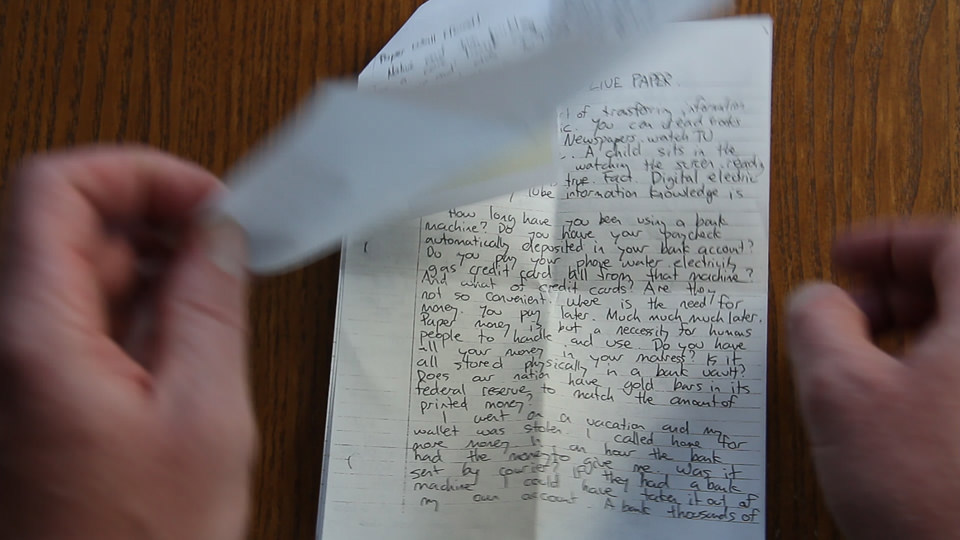 Paper
LIVE PAPER.
of trasforing information
ic. You can read books
Newspapers. watch TV
. A child sits in the
watching the screen ready
true. Fact. Digital electric
lube information knowledge is
How long have you been using a bank
machine? Do you have your paycheck
automatically deposited in your bank account?
Do you pay your phone water electrivity
gas credit card bill from that machine?
And what of credit cards? Are they
not so convenient. Where is the need for
money. You pay later. Much much much later.
Paper money is but a necessity for humans
people to handle and use. Do you have
all your money in your madress? Is it
all stored physically in a bank vault?
Does our nation have gold bars in its
federal reserve to match the amount of
printed money?
I went on a vacation and my
wallet was stolen. I called home for
more money. In an hour the bank
had the money to give me. Was it
sent by courier? If they had a bank
machine I could have taken it out of
my own account. A bank thousands of